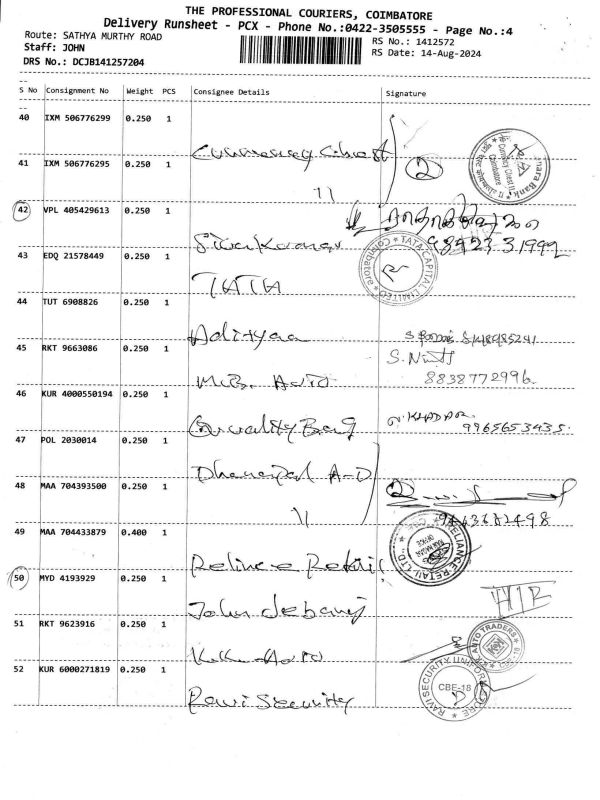 THE PROFESSIONAL COURIERS, COIMBATORE
Delivery Runsheet - PCX - Phone No.:0422-3505555 - Page No.:4
Route: SATHYA MURTHY ROAD
RS No.: 1412572
Staff: JOHN
RS Date: 14-Aug-2024
DRS No.: DCJB141257204
S No Consignment No Weight PCS Consignee Details Signature
40 IXM 506776299 0.250 1
Currency Chest
41 IXM 506776295 0.250 1
11 2
42 VPL 405429613 0.250 1
Siva Kumar 98423 31992
43 EDQ 21578449 0.250 1
TATA
TATA CAPITAL LIMITED * Coimbatore *
44 TUT 6908826 0.250 1
Adityaa
45 RKT 9663086 0.250 1
M.B. Auto 8838772996
46 KUR 4000550194 0.250 1
Quality Bag N. KHADAR 9965653435
47 POL 2030014 0.250 1
Dhanapal A-D
48 MAA 704393500 0.250 1
11 2
49 MAA 704433879 0.400 1
Relince Retail
RELIANCE RETAIL LTD.
50 MYD 4193929 0.250 1
John debaraj
51 RKT 9623916 0.250 1
K.K. Auto
52 KUR 6000271819 0.250 1
Ravi Security
RAVI SECURITY UNIFORM STORE
CBE-18